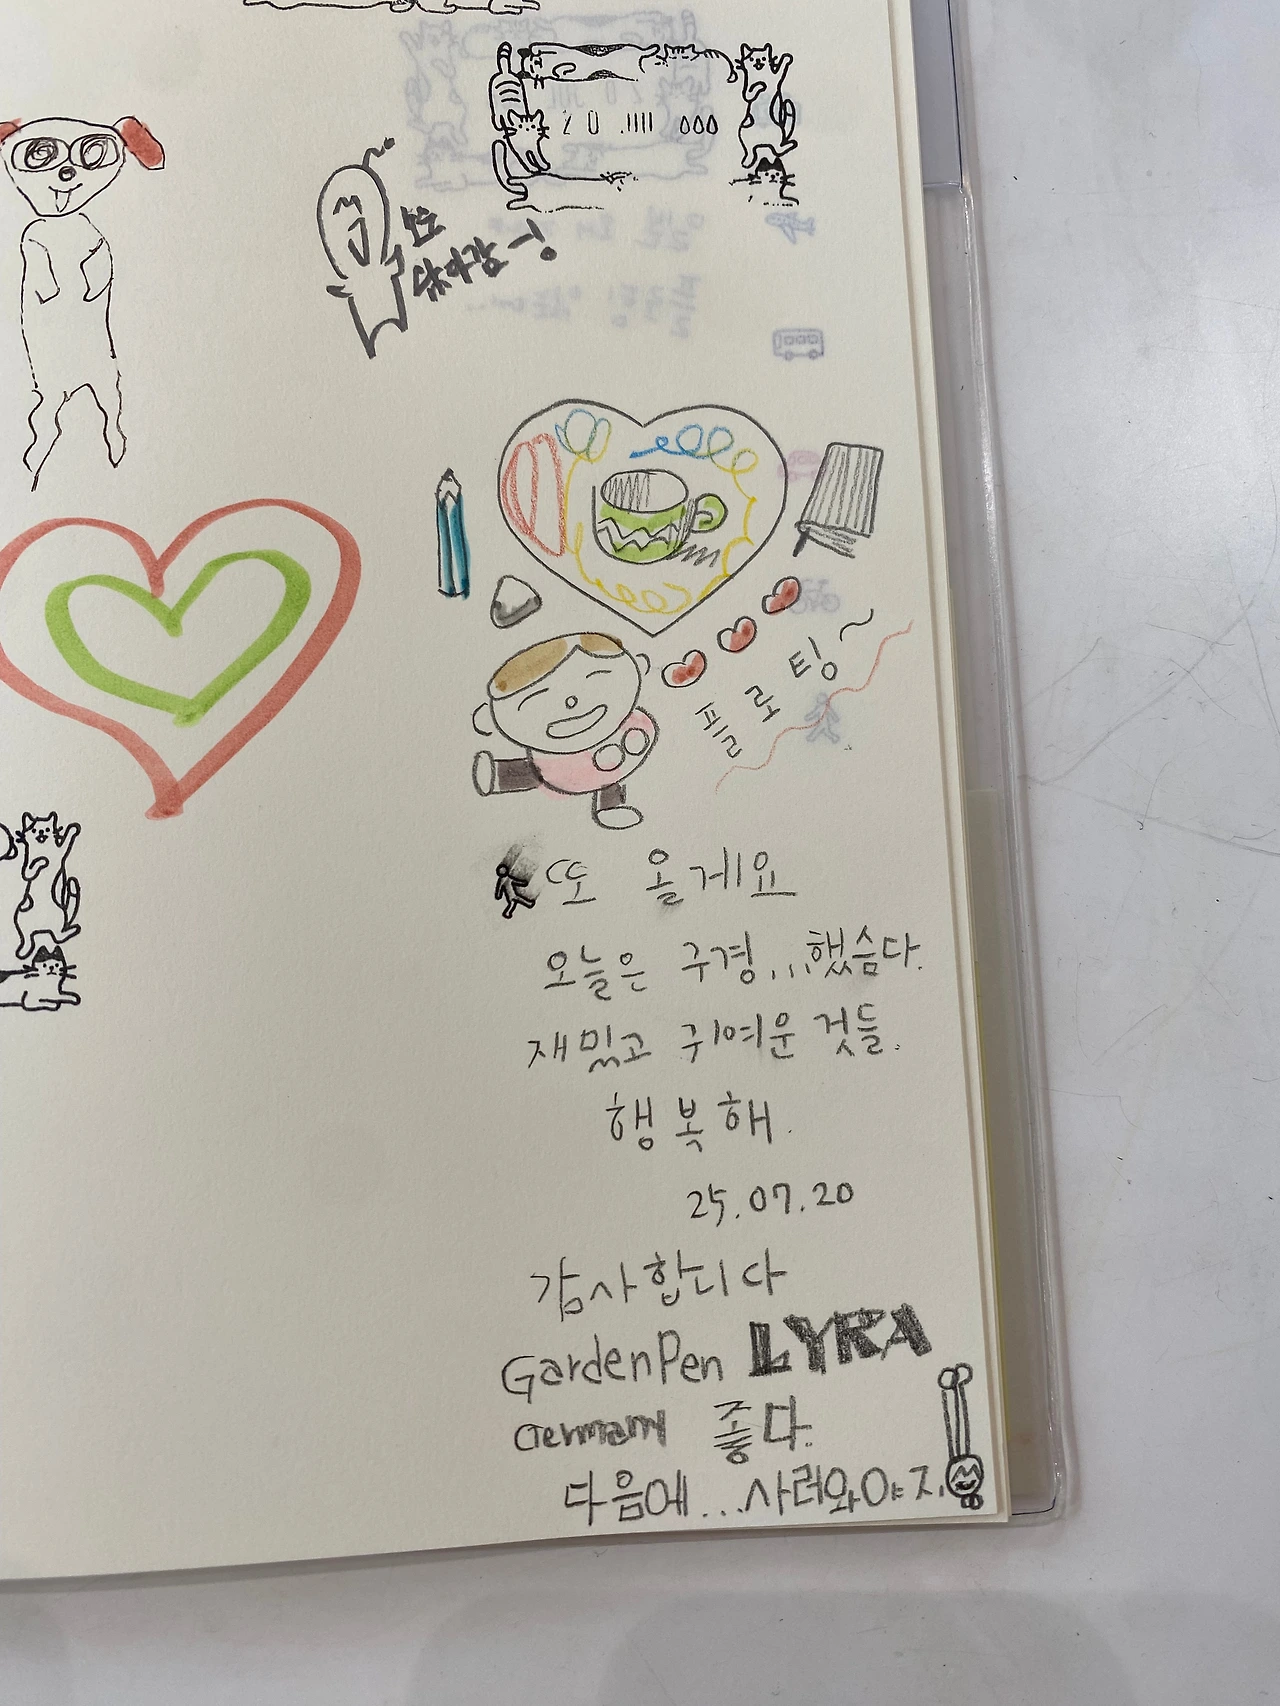 20 .1111 000
플로팅~
또 올게요
오늘은 구경...했슴다.
재밌고 귀여운 것들.
행복해.
25.07.20
감사합니다
GardenPen LYRA
Germany 좋다.
다음에...사러와야지.